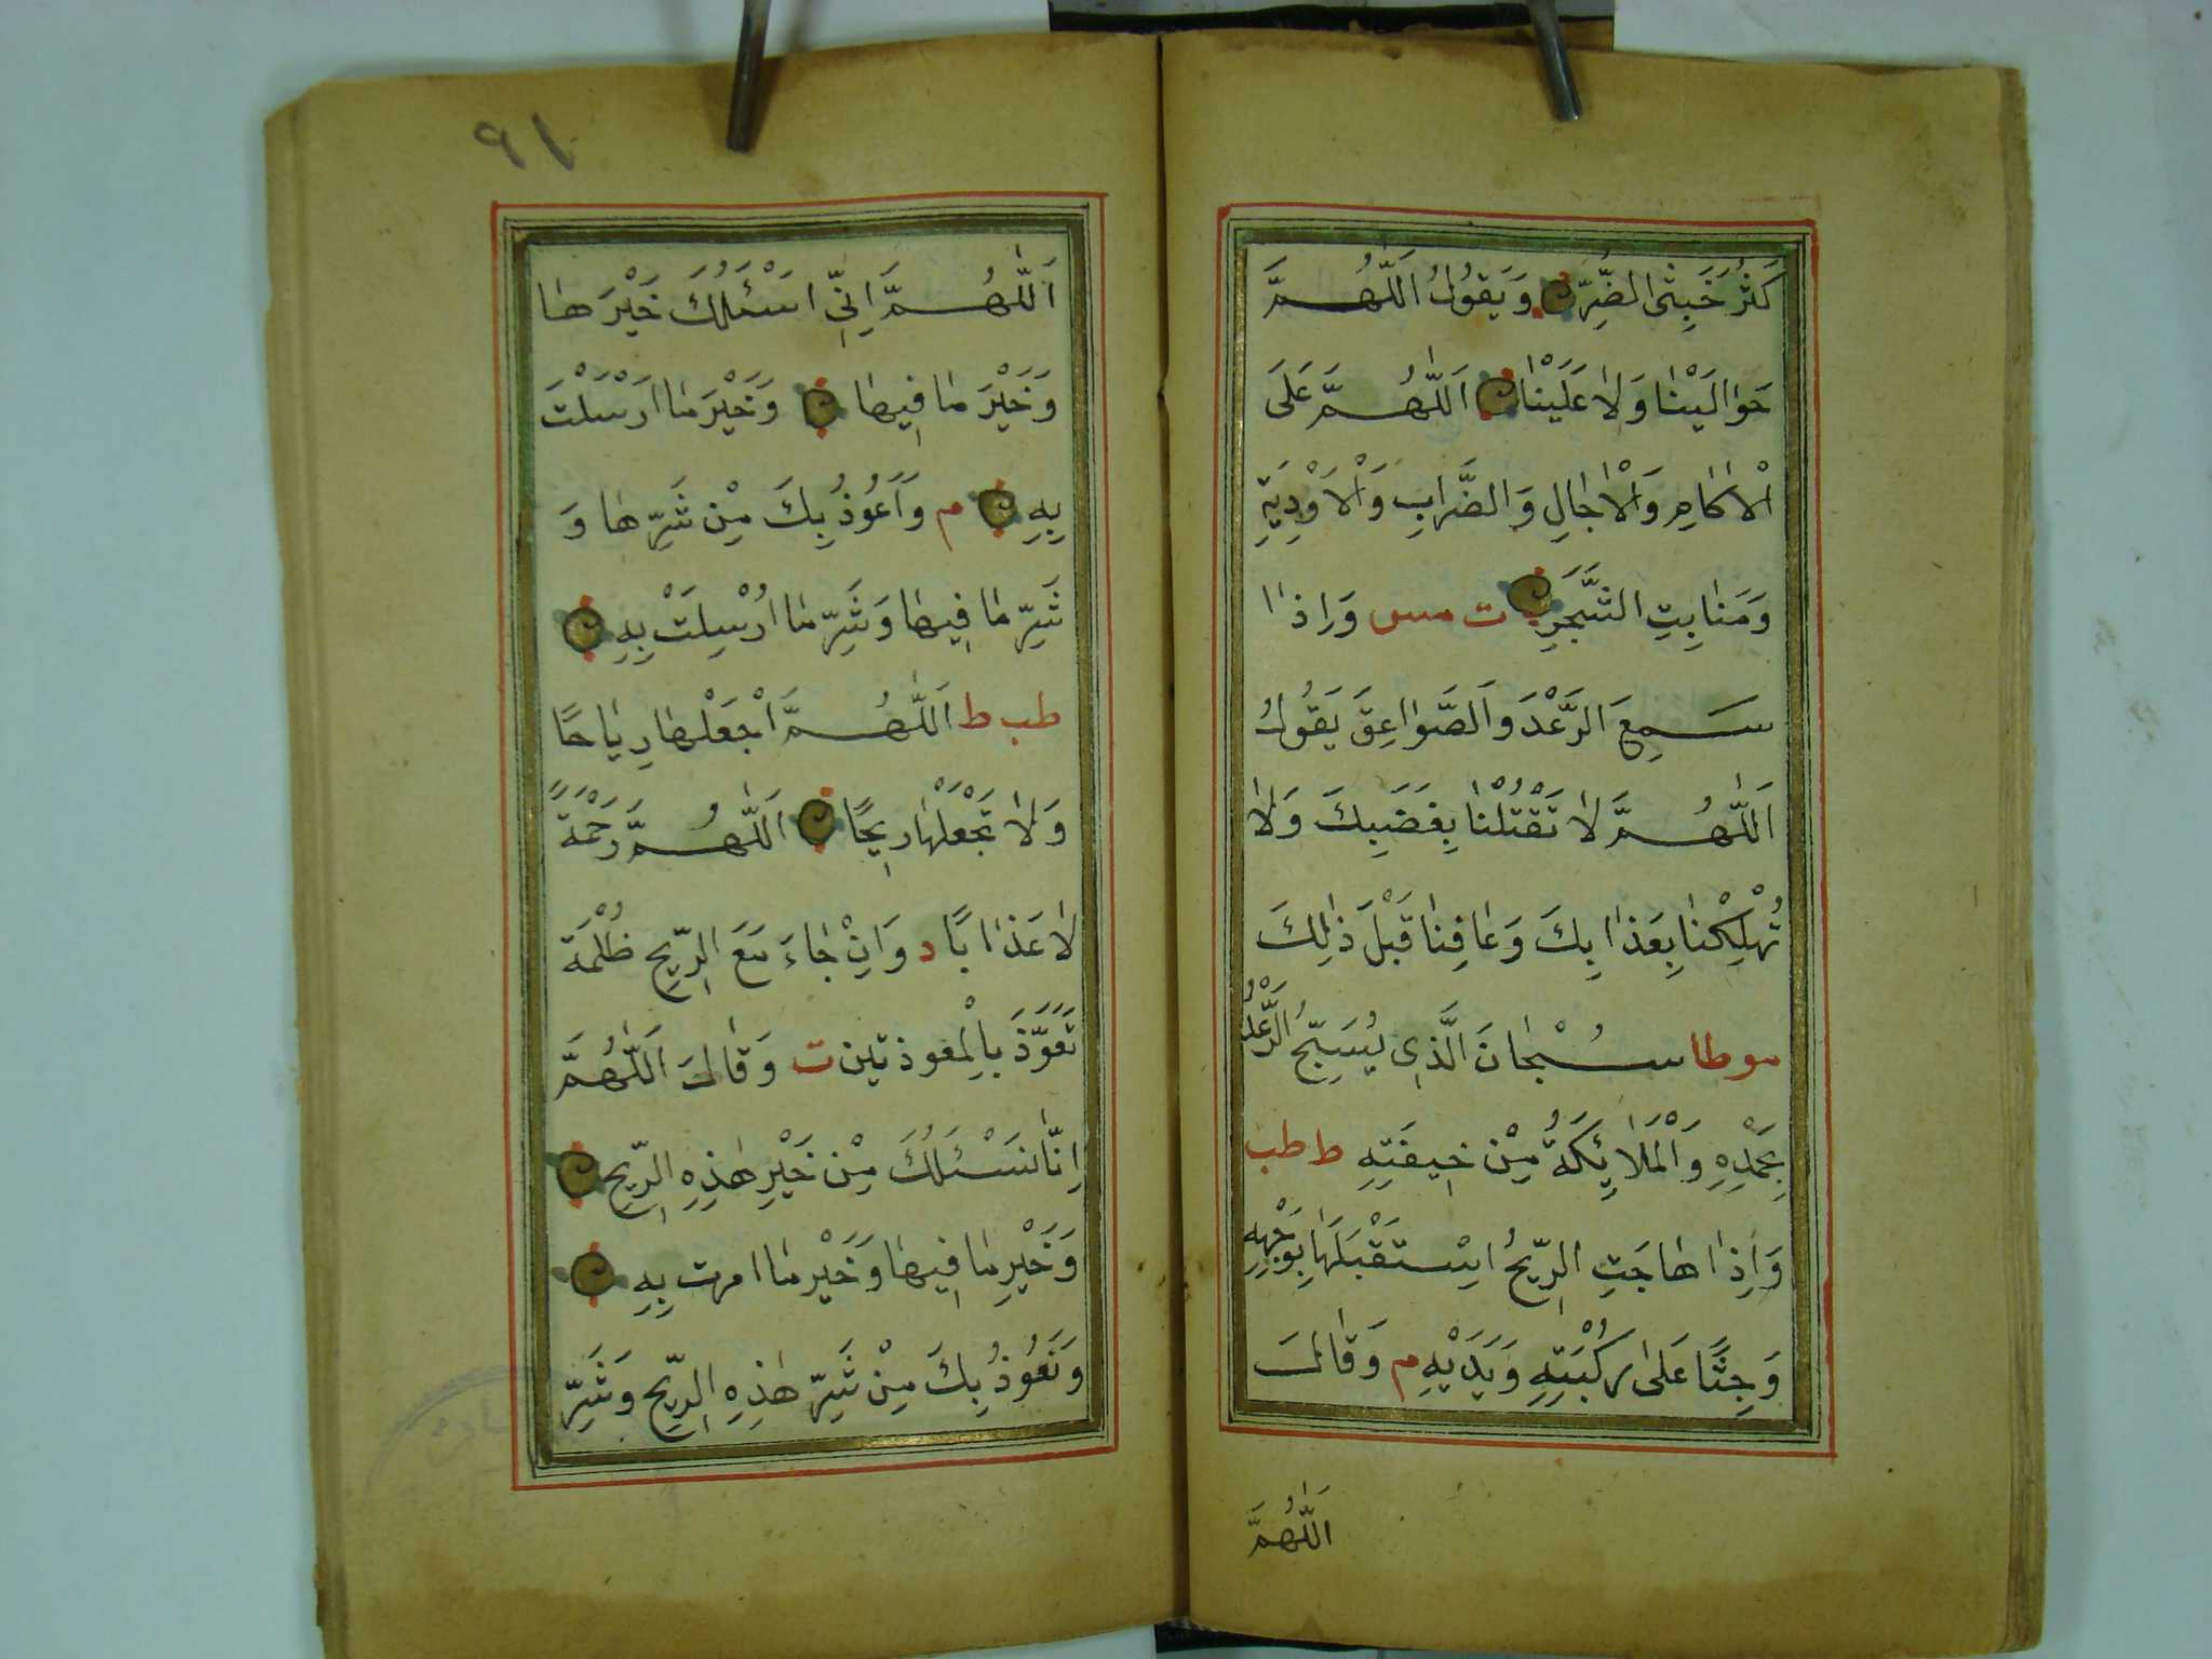 كَثُرَ خَبِثَى الضُّرِّ وَيَقُولُ اَللّٰهُمَّ
حَوٰالَيْنٰا وَلاٰ عَلَيْنٰا اَللّٰهُمَّ عَلَى
اْلاٰكامِ وَاْلاٰجٰالِ وَالضَّرٰابِ وَاْلاَوْدِيَةِ
وَمَنٰابِتِ الشَّجَرِ ت مس وَاِذٰا
سَمِعَ الرَّعْدَ وَالصَّوٰاعِقَ يَقُولُ
اَللّٰهُمَّ لاٰ تَقْتُلْنٰا بِغَضَبِكَ وَلاٰ
تُهْلِكْنٰا بِعَذٰابِكَ وَعٰافِنٰا قَبْلَ ذٰلِكَ
موطا سُبْحٰانَ الَّذِى يُسَبِّحُ الرَّعْدُ
بِحَمْدِهِ وَالْمَلاٰئِكَةُ مِنْ خِيفَتِهِ ط طب
وَاِذٰا هٰاجَتِ الرِّيحُ اِسْتَقْبَلَهٰا بِوَجْهِهِ
وَجِثًا عَلىٰ رُكْبَتِهِ وَيَدَيْهِ م وَقٰالَ
اَللّٰهُمَّ
٩١
اَللّٰهُمَّ اِنِّى اَسْئَلُكَ خَيْرَهٰا
وَخَيْرَ مٰا فِيهٰا وَخَيْرَ مٰا اَرْسَلْتَ
بِهِ م وَاَعُوذُ بِكَ مِنْ شَرِّهٰا وَ
شَرِّ مٰا فِيهٰا وَشَرِّ مٰا اُرْسِلَتْ بِهِ
طب ط اَللّٰهُمَّ اْجْعَلْهٰا رِيٰاحًا
وَلاٰ تَجْعَلْهٰا رِيحًا اَللّٰهُمَّ رَحْمَةً
لاٰ عَذٰابًا د وَاِنْ جٰاءَ مَعَ الرِّيحِ ظُلْمَة
تَعَوَّذَ بِالْمعوذتين ت وَقٰالَ اَللّٰهُمَّ
اِنّٰا نَسْئَلُكَ مِنْ خَيْرِ هٰذِهِ الرِّيحِ
وَخَيْرِ مٰا فِيهٰا وَخَيْرِ مٰا امرت بِهِ
وَنَعُوذُ بِكَ مِنْ شَرِّ هٰذِهِ الرِّيحِ وَشَرِّ